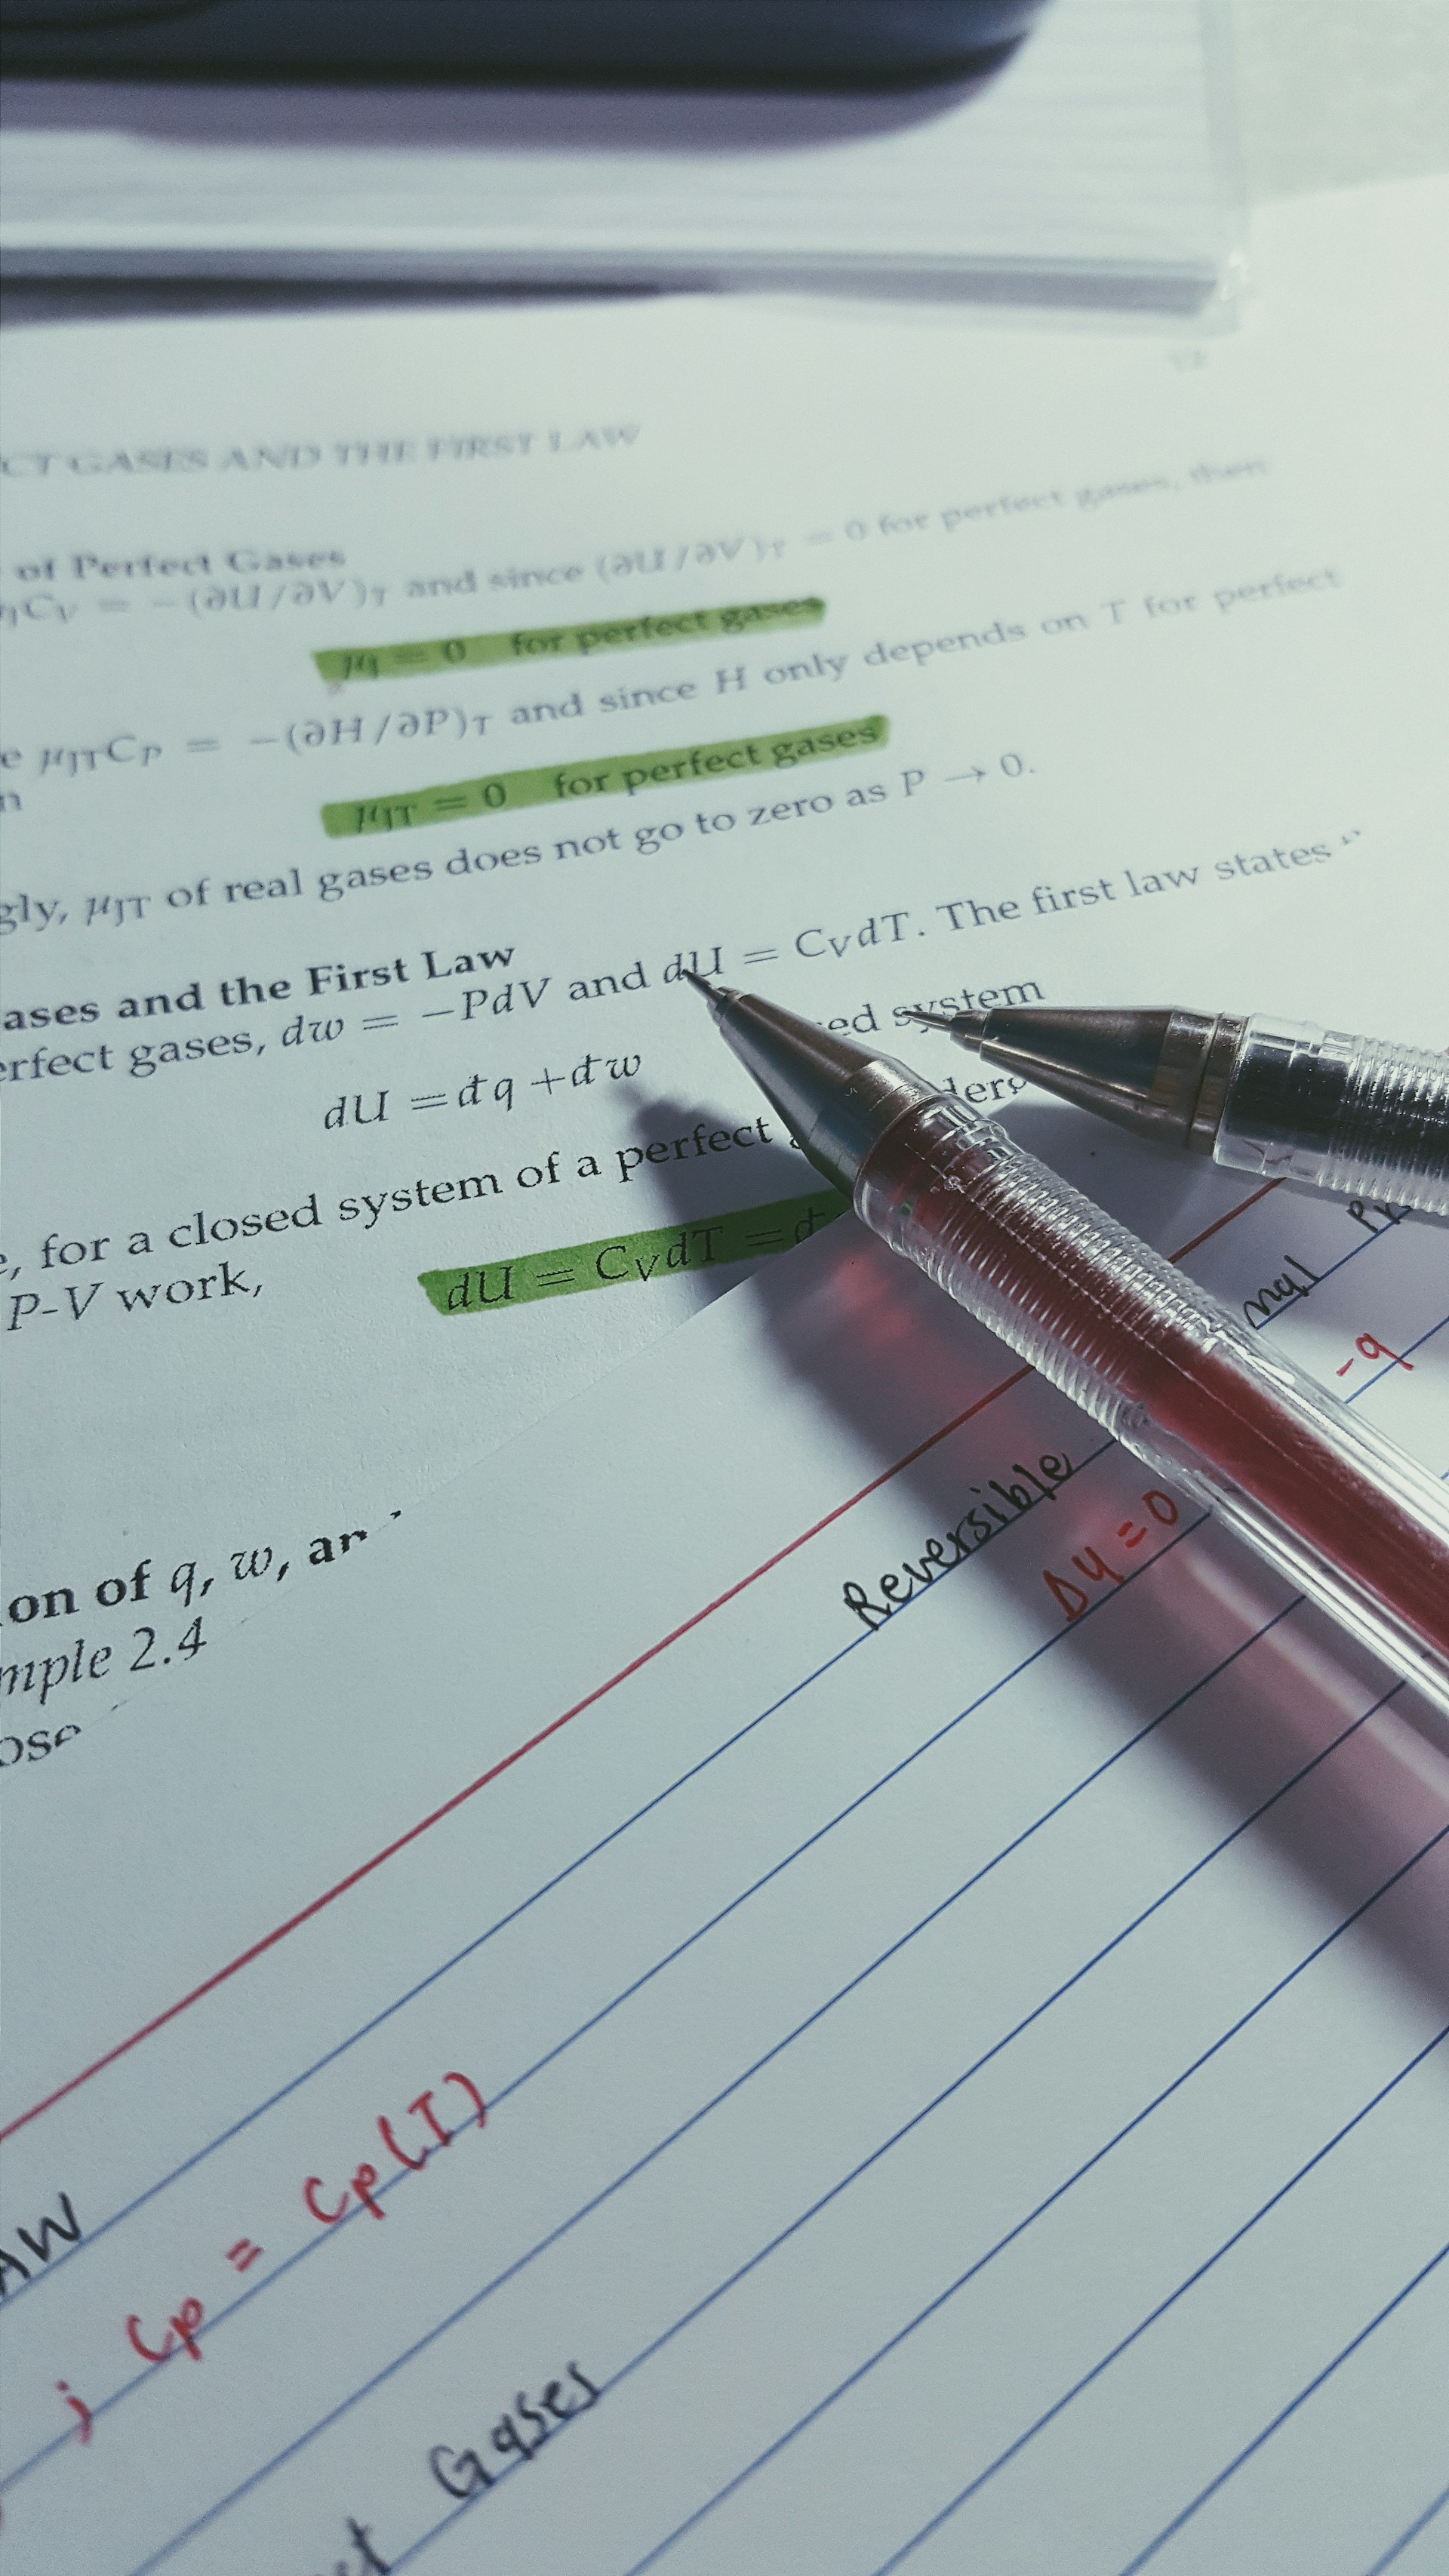 CT GASES AND THE FIRST LAW
of Perfect Gases
JCV = −(∂U/∂V)T and since (∂U/∂V)T = 0 for perfect gases, then
μJ = 0 for perfect gases
e μJTCP = −(∂H/∂P)T and since H only depends on T for perfect
n
μJT = 0 for perfect gases
gly, μJT of real gases does not go to zero as P → 0.
ases and the First Law
erfect gases, dw = −PdV and dU = CVdT. The first law states
ed system
dU = đq + đw
e, for a closed system of a perfect
P-V work,
dU = CVdT = đ
on of q, w, an
mple 2.4
ose
nal
-q
Reversible
ΔU = 0
AW
; Cp = Cp(T)
Gases